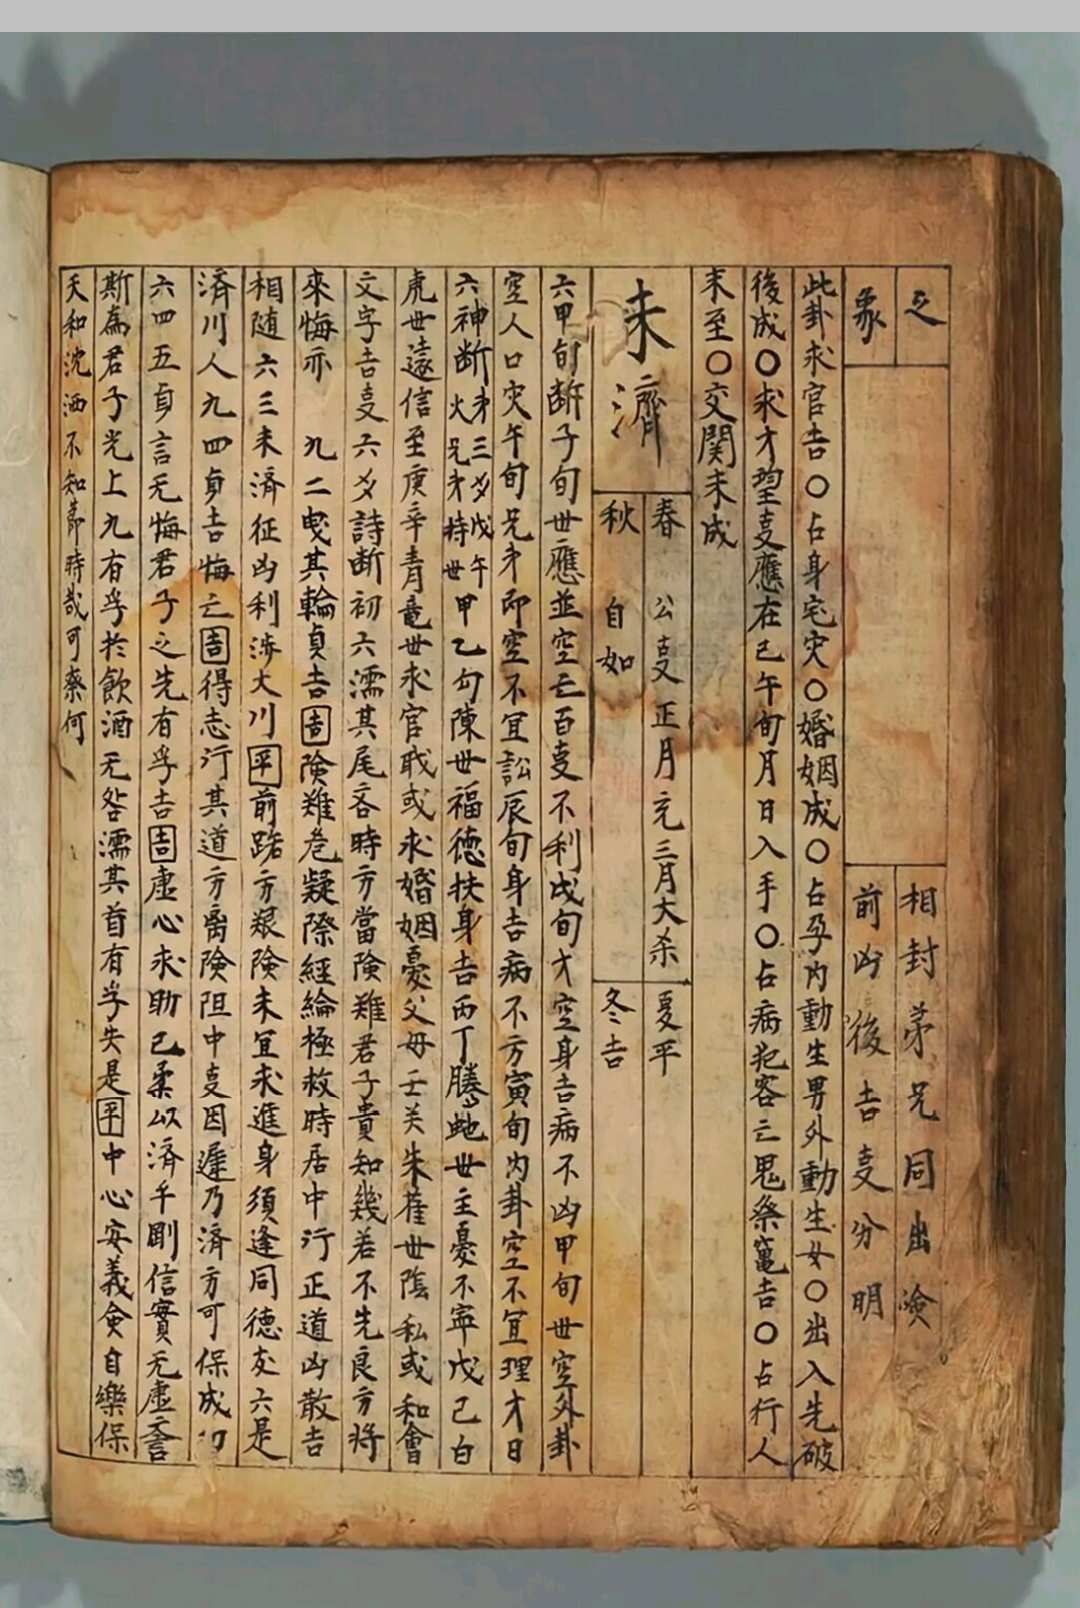 之
象
相封弟兄同出淪
前凶後吉叓分明
此卦求官吉〇占身宅灾〇婚姻成〇占孕內動生男外動生女〇出入先破
後成〇求才望叓應在巳午旬月日入手〇占病犯客亡鬼祭竃吉〇占行人
未至〇交関未成
未濟
春 公叓正月元三月大杀
夏平
秋 自如
冬吉
六甲旬断子旬世應並空亡百叓不利戌旬才空身吉病不凶甲旬世空外卦
空人口灾午旬兄弟即空不宜訟辰旬身吉病不方寅旬內卦空不宜理才日
六神断 弟三爻戊午火兄弟持世 甲乙勾陳世福德扶身吉丙丁騰虵世主憂不寧戊己白
虎世遠信至庚辛青竜世求官戝或求婚姻憂父母壬关朱隺世陰私或和會
文字吉叓六爻詩断初六濡其尾吝時方當険難君子貴知幾若不先良方将
來悔亦 九二曳其輪貞吉吉険難危疑際經綸極救時居中行正道凶散吉
相随六三未済征凶利涉大川平前路方艱険未宜求進身須逢同德友六是
済川人九四貞吉悔亡吉得志行其道方离険阻中叓因遲乃済方可保成功
六四五貞言无悔君子之先有孚吉吉虚心求助己柔以済乎剛信實无虚䛇
斯為君子光上九有孚於飲酒无咎濡其首有孚失是平中心安義僉自樂保
天和沈洒不知莭時哉可柰何